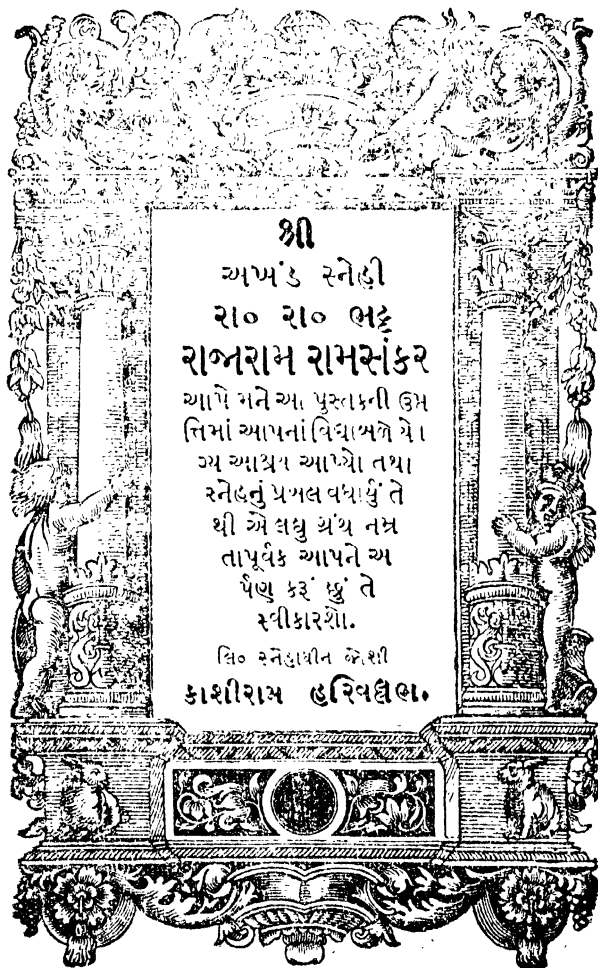 શ્રી
અખંડ સ્નેહી
રા૦ રા૦ ભટ્ટ
રાજારામ રામસંકર
આપે મને આ પુસ્તકની ઉપ્ત
ત્તિમાં આપનાં વિદ્યાબળે યો
ગ્ય આશ્રય આપ્યો તથા
સ્નેહનું પ્રબલ વધાર્યું તે
થી એ લઘુ ગ્રંથ નમ્ર
તાપૂર્વક આપને અ
ર્પણ કરૂં છું તે
સ્વીકારશો.
લિ૦ સ્નેહાધીન જોશી
કાશીરામ હરિવલ્લભ.